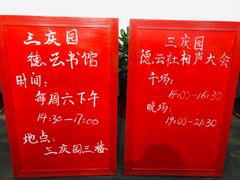 三庆园
德云书馆
时间:
每周六下午
14:30-17:00
地点:
三庆园三楼
三庆园
德云社相声大会
午场:
14:00-16:30
晚场:
19:00-21:30